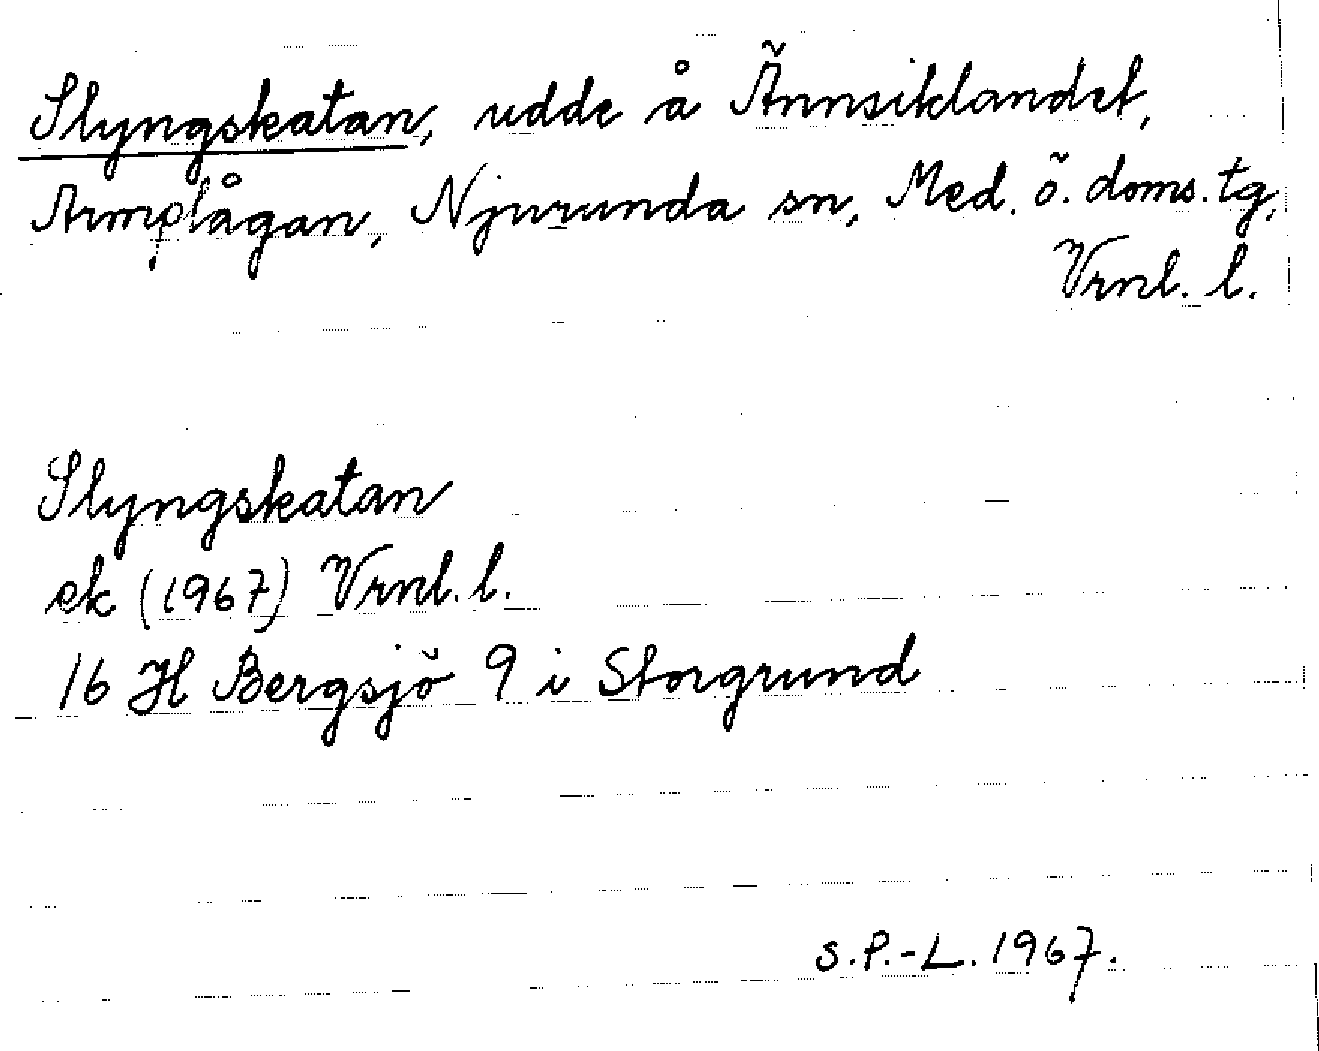 Slyngskatan, udde å Ännsiklandet,
Armplågan, Njurunda sn, Med. ö. doms. tg,
Vrnl. l.
Slyngskatan
ek (1967) Vrnl. l.
16 H Bergsjö 9 i Storgrund
S.P.-L. 1967.